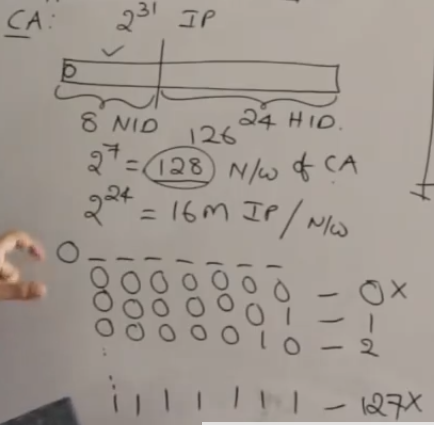 CA: 2^31 IP
0
8 NID 24 HID.
126
2^7 = 128 N/w of CA
2^24 = 16M IP / N/w
0 _ _ _ _ _ _ _
0 0 0 0 0 0 0 - 0 X
0 0 0 0 0 0 1 - 1
0 0 0 0 0 1 0 - 2
:
1 1 1 1 1 1 1 - 127 X